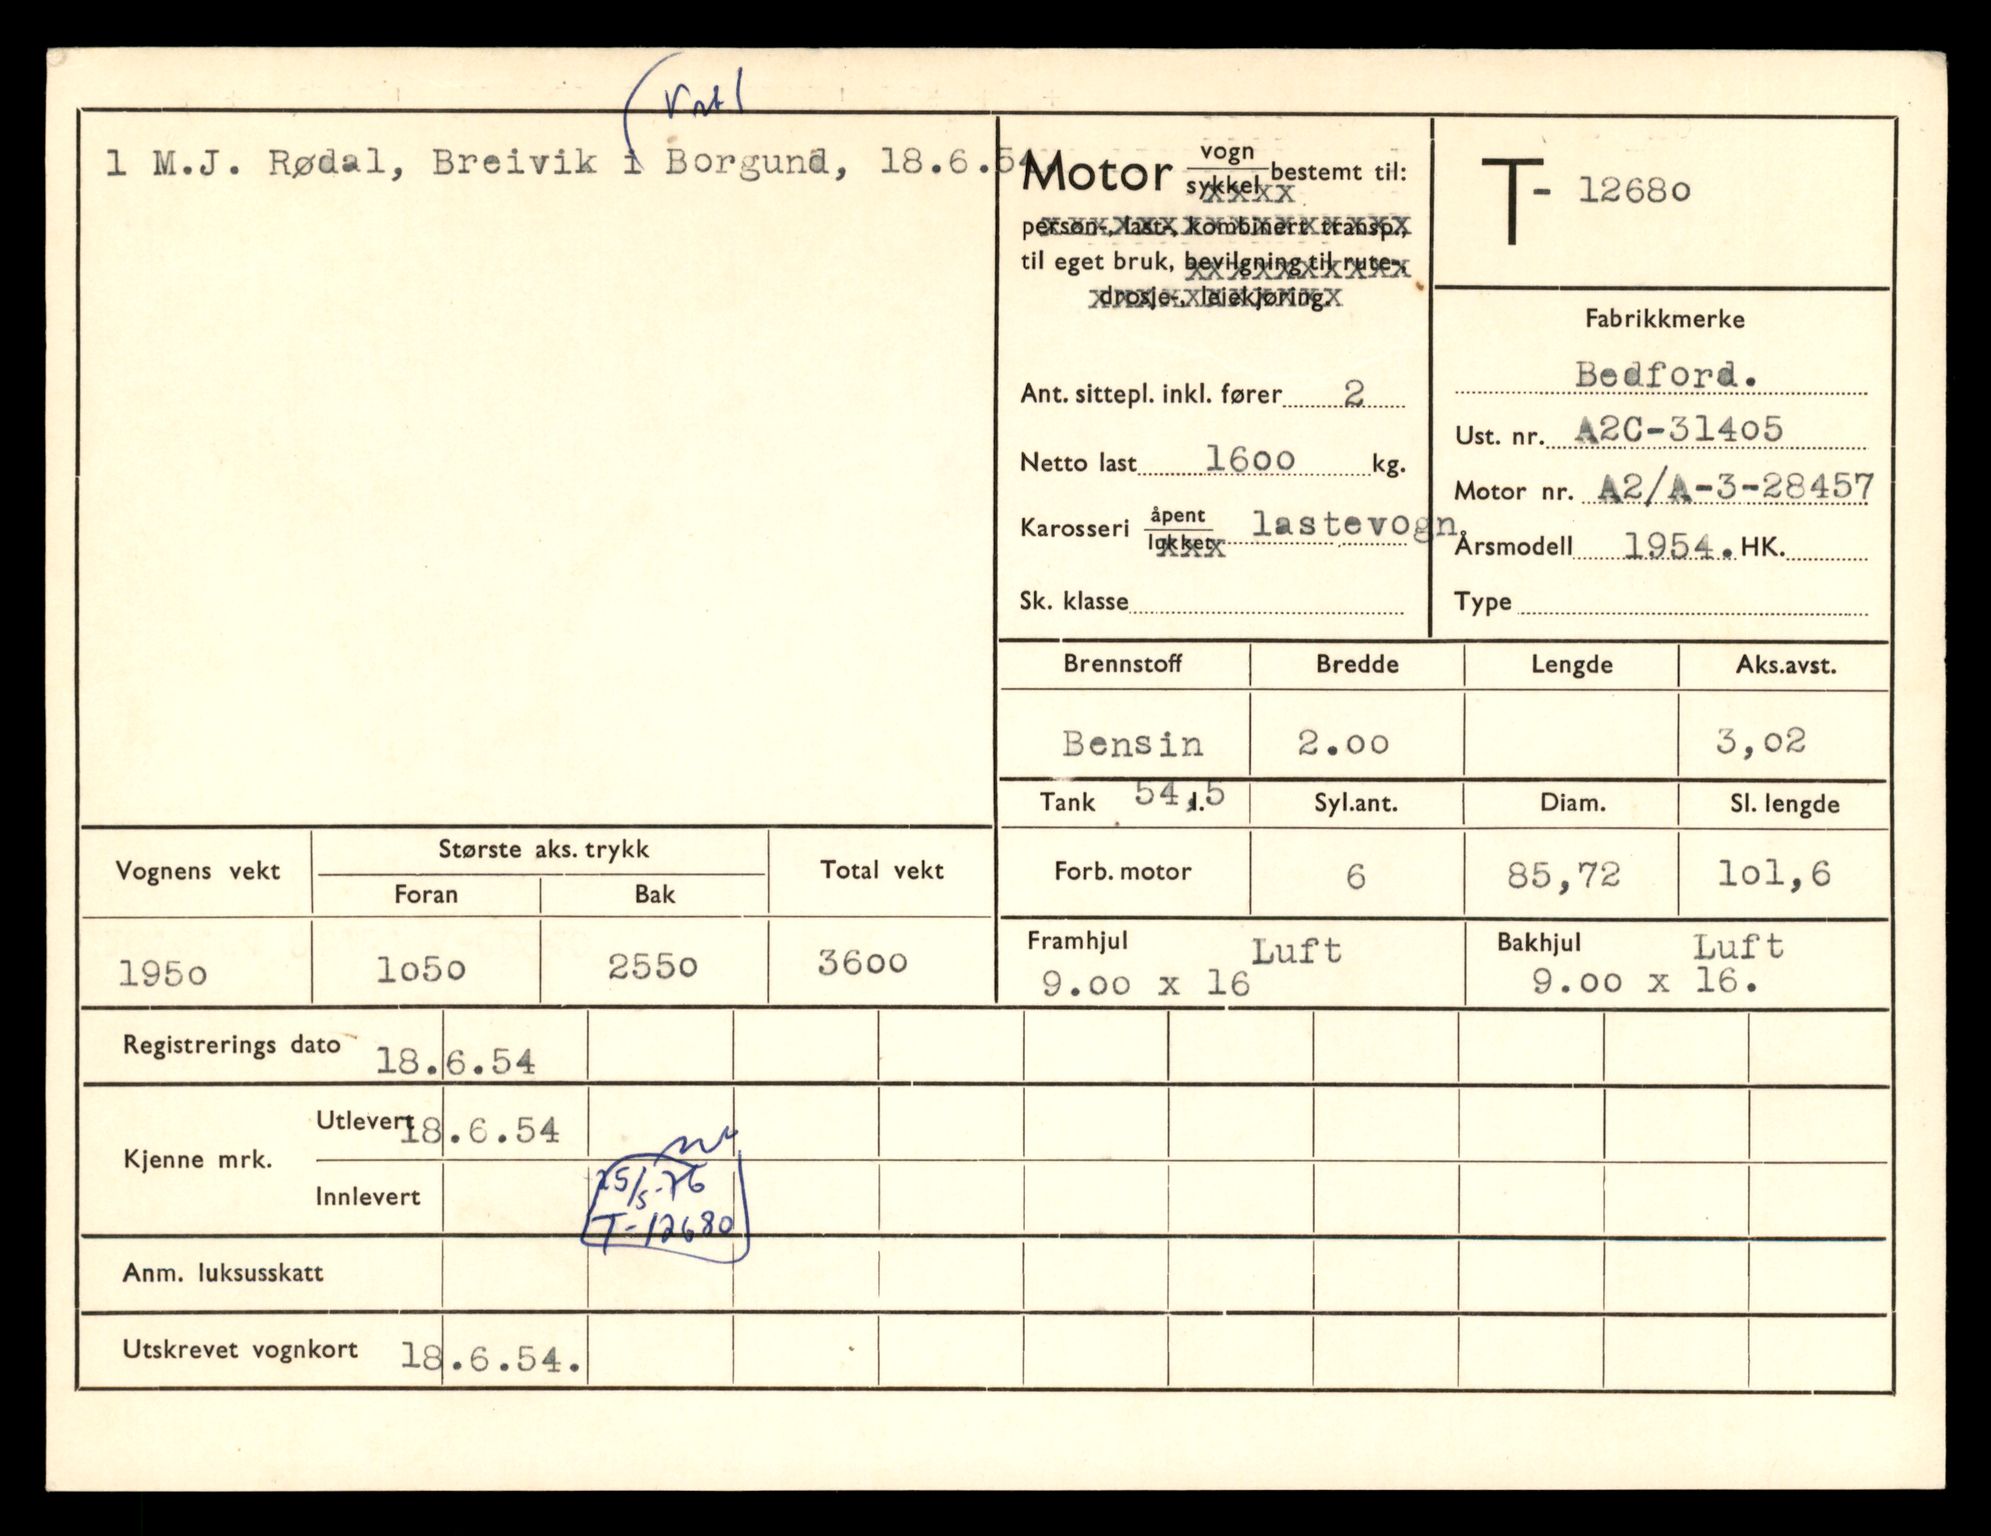 1 M.J. Rødal, Breivik i Borgund, 18.6.54.
Motor vogn bestemt til:
sykkel
person-, last-, kombinert transp.,
til eget bruk, bevilgning til rute-,
drosje-, leiekjøring.
Ant. sittepl. inkl. fører 2
Netto last 1600 kg.
Karosseri åpent lastevogn
lukket
Sk. klasse
T- 12680
Fabrikkmerke
Bedford.
Ust. nr. A2C-31405
Motor nr. A2/A-3-28457
Årsmodell 1954. HK.
Type
Brennstoff Bredde Lengde Aks.avst.
Bensin 2.00 3,02
Tank 54,5 l. Syl.ant. Diam. Sl. lengde
Forb. motor 6 85,72 101,6
Framhjul Luft Bakhjul Luft
9.00 x 16 9.00 x 16.
Vognens vekt Største aks. trykk Total vekt
Foran Bak
1950 1050 2550 3600
Registrerings dato 18.6.54
Kjenne mrk. Utlevert 18.6.54
Innlevert 25/5-76
T-12680
Anm. luksusskatt
Utskrevet vognkort 18.6.54.